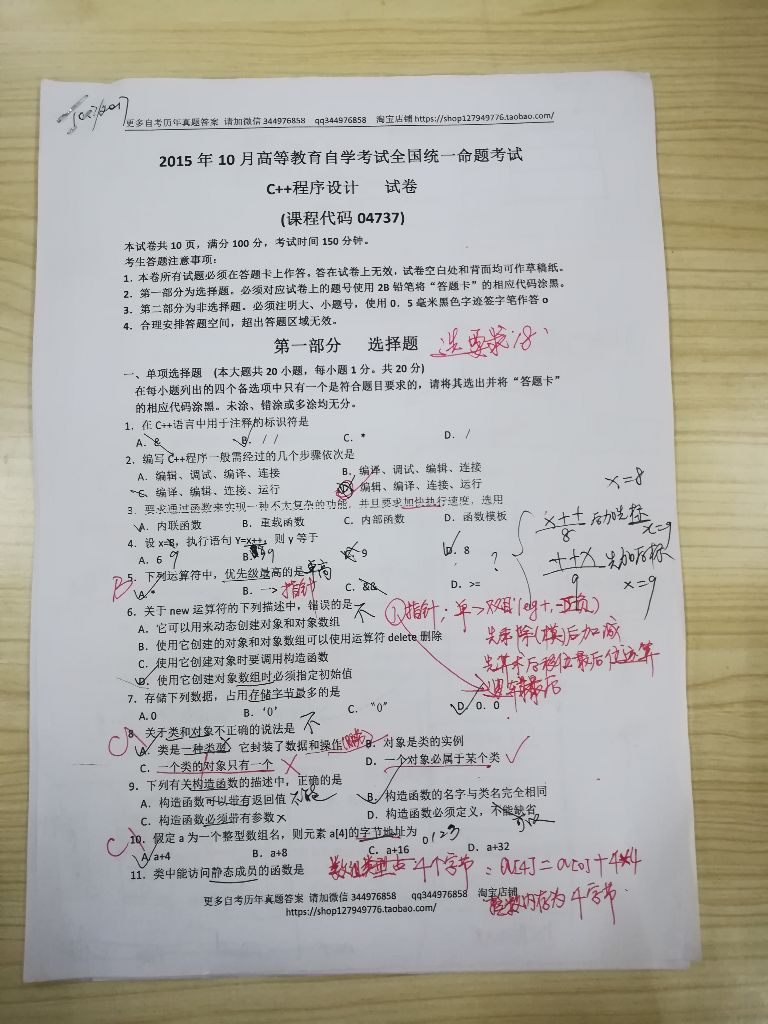 更多自考历年真题答案 请加微信 344976858 qq344976858 淘宝店铺 https://shop127949776.taobao.com/
2015 年 10 月高等教育自学考试全国统一命题考试
C++程序设计 试卷
(课程代码 04737)
本试卷共 10 页，满分 100 分，考试时间 150 分钟。
考生答题注意事项：
1．本卷所有试题必须在答题卡上作答。答在试卷上无效，试卷空白处和背面均可作草稿纸。
2．第一部分为选择题。必须对应试卷上的题号使用 2B 铅笔将“答题卡”的相应代码涂黑。
3．第二部分为非选择题。必须注明大、小题号，使用 0．5 毫米黑色字迹签字笔作答 o
4．合理安排答题空间，超出答题区域无效。
第一部分 选择题
一、单项选择题 (本大题共 20 小题，每小题 1 分。共 20 分)
在每小题列出的四个备选项中只有一个是符合题目要求的，请将其选出并将“答题卡”
的相应代码涂黑。未涂、错涂或多涂均无分。
1．在 C++语言中用于注释的标识符是
A．& B．// C．* D．/
2．编写 C++程序一般需经过的几个步骤依次是
A．编辑、调试、编译、连接 B．编译、调试、编辑、连接
C．编译、编辑、连接、运行 D．编辑、编译、连接、运行
x=8
3．要求通过函数来实现一种不太复杂的功能，并且要求加快执行速度，选用
A．内联函数 B．重载函数 C．内部函数 D．函数模板
x++ 后加先标
8 x=9
4．设 x=8，执行语句 Y=x++，则 y 等于
A．6 9 B． 9 C．9 D．8 ?
++x 先加后标
9 x=9
5．下列运算符中，优先级最高的是 单高
B
A．* B．--> 指针 C．&& D．>=
6．关于 new 运算符的下列描述中，错误的是 不
① 指针：单->双目(eg +,-正负)
A．它可以用来动态创建对象和对象数组
先乘除(模)后加减
B．使用它创建的对象和对象数组可以使用运算符 delete 删除
C．使用它创建对象时要调用构造函数
先算术后移位最后位运算
D．使用它创建对象数组时必须指定初始值
7．存储下列数据，占用存储字节最多的是
A. 0 B．‘0’ C．“0” D．0．0
8．关于类和对象不正确的说法是 不
C
A．类是一种类型，它封装了数据和操作 B．对象是类的实例
C．一个类的对象只有一个 D．一个对象必属于某个类
9．下列有关构造函数的描述中，正确的是
A．构造函数可以带有返回值 不能 B．构造函数的名字与类名完全相同
C．构造函数必须带有参数 x D．构造函数必须定义，不能缺省
可以
10．假定 a 为一个整型数组名，则元素 a[4]的字节地址为 0123
C
A．a+4 B．a+8 C．a+16 D．a+32
11．类中能访问静态成员的函数是
数组类型占 4个字节：a[4]=a[0]+4*4
整数内存为 4 字节
更多自考历年真题答案 请加微信 344976858 qq344976858 淘宝店铺
https://shop127949776.taobao.com/